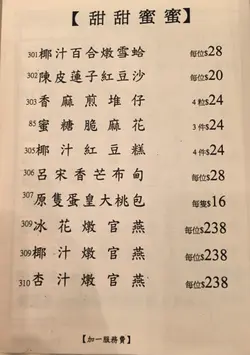 【甜甜蜜蜜】
301 椰汁百合燉雪蛤 每位$28
302 陳皮蓮子紅豆沙 每位$20
303 香麻煎堆仔 4粒$24
85 蜜糖脆麻花 3件$24
305 椰汁紅豆糕 4件$24
306 呂宋香芒布甸 每位$28
307 原隻蛋皇大桃包 每隻$16
309 冰花燉官燕 每位$238
309 椰汁燉官燕 每位$238
310 杏汁燉官燕 每位$238
【加一服務費】